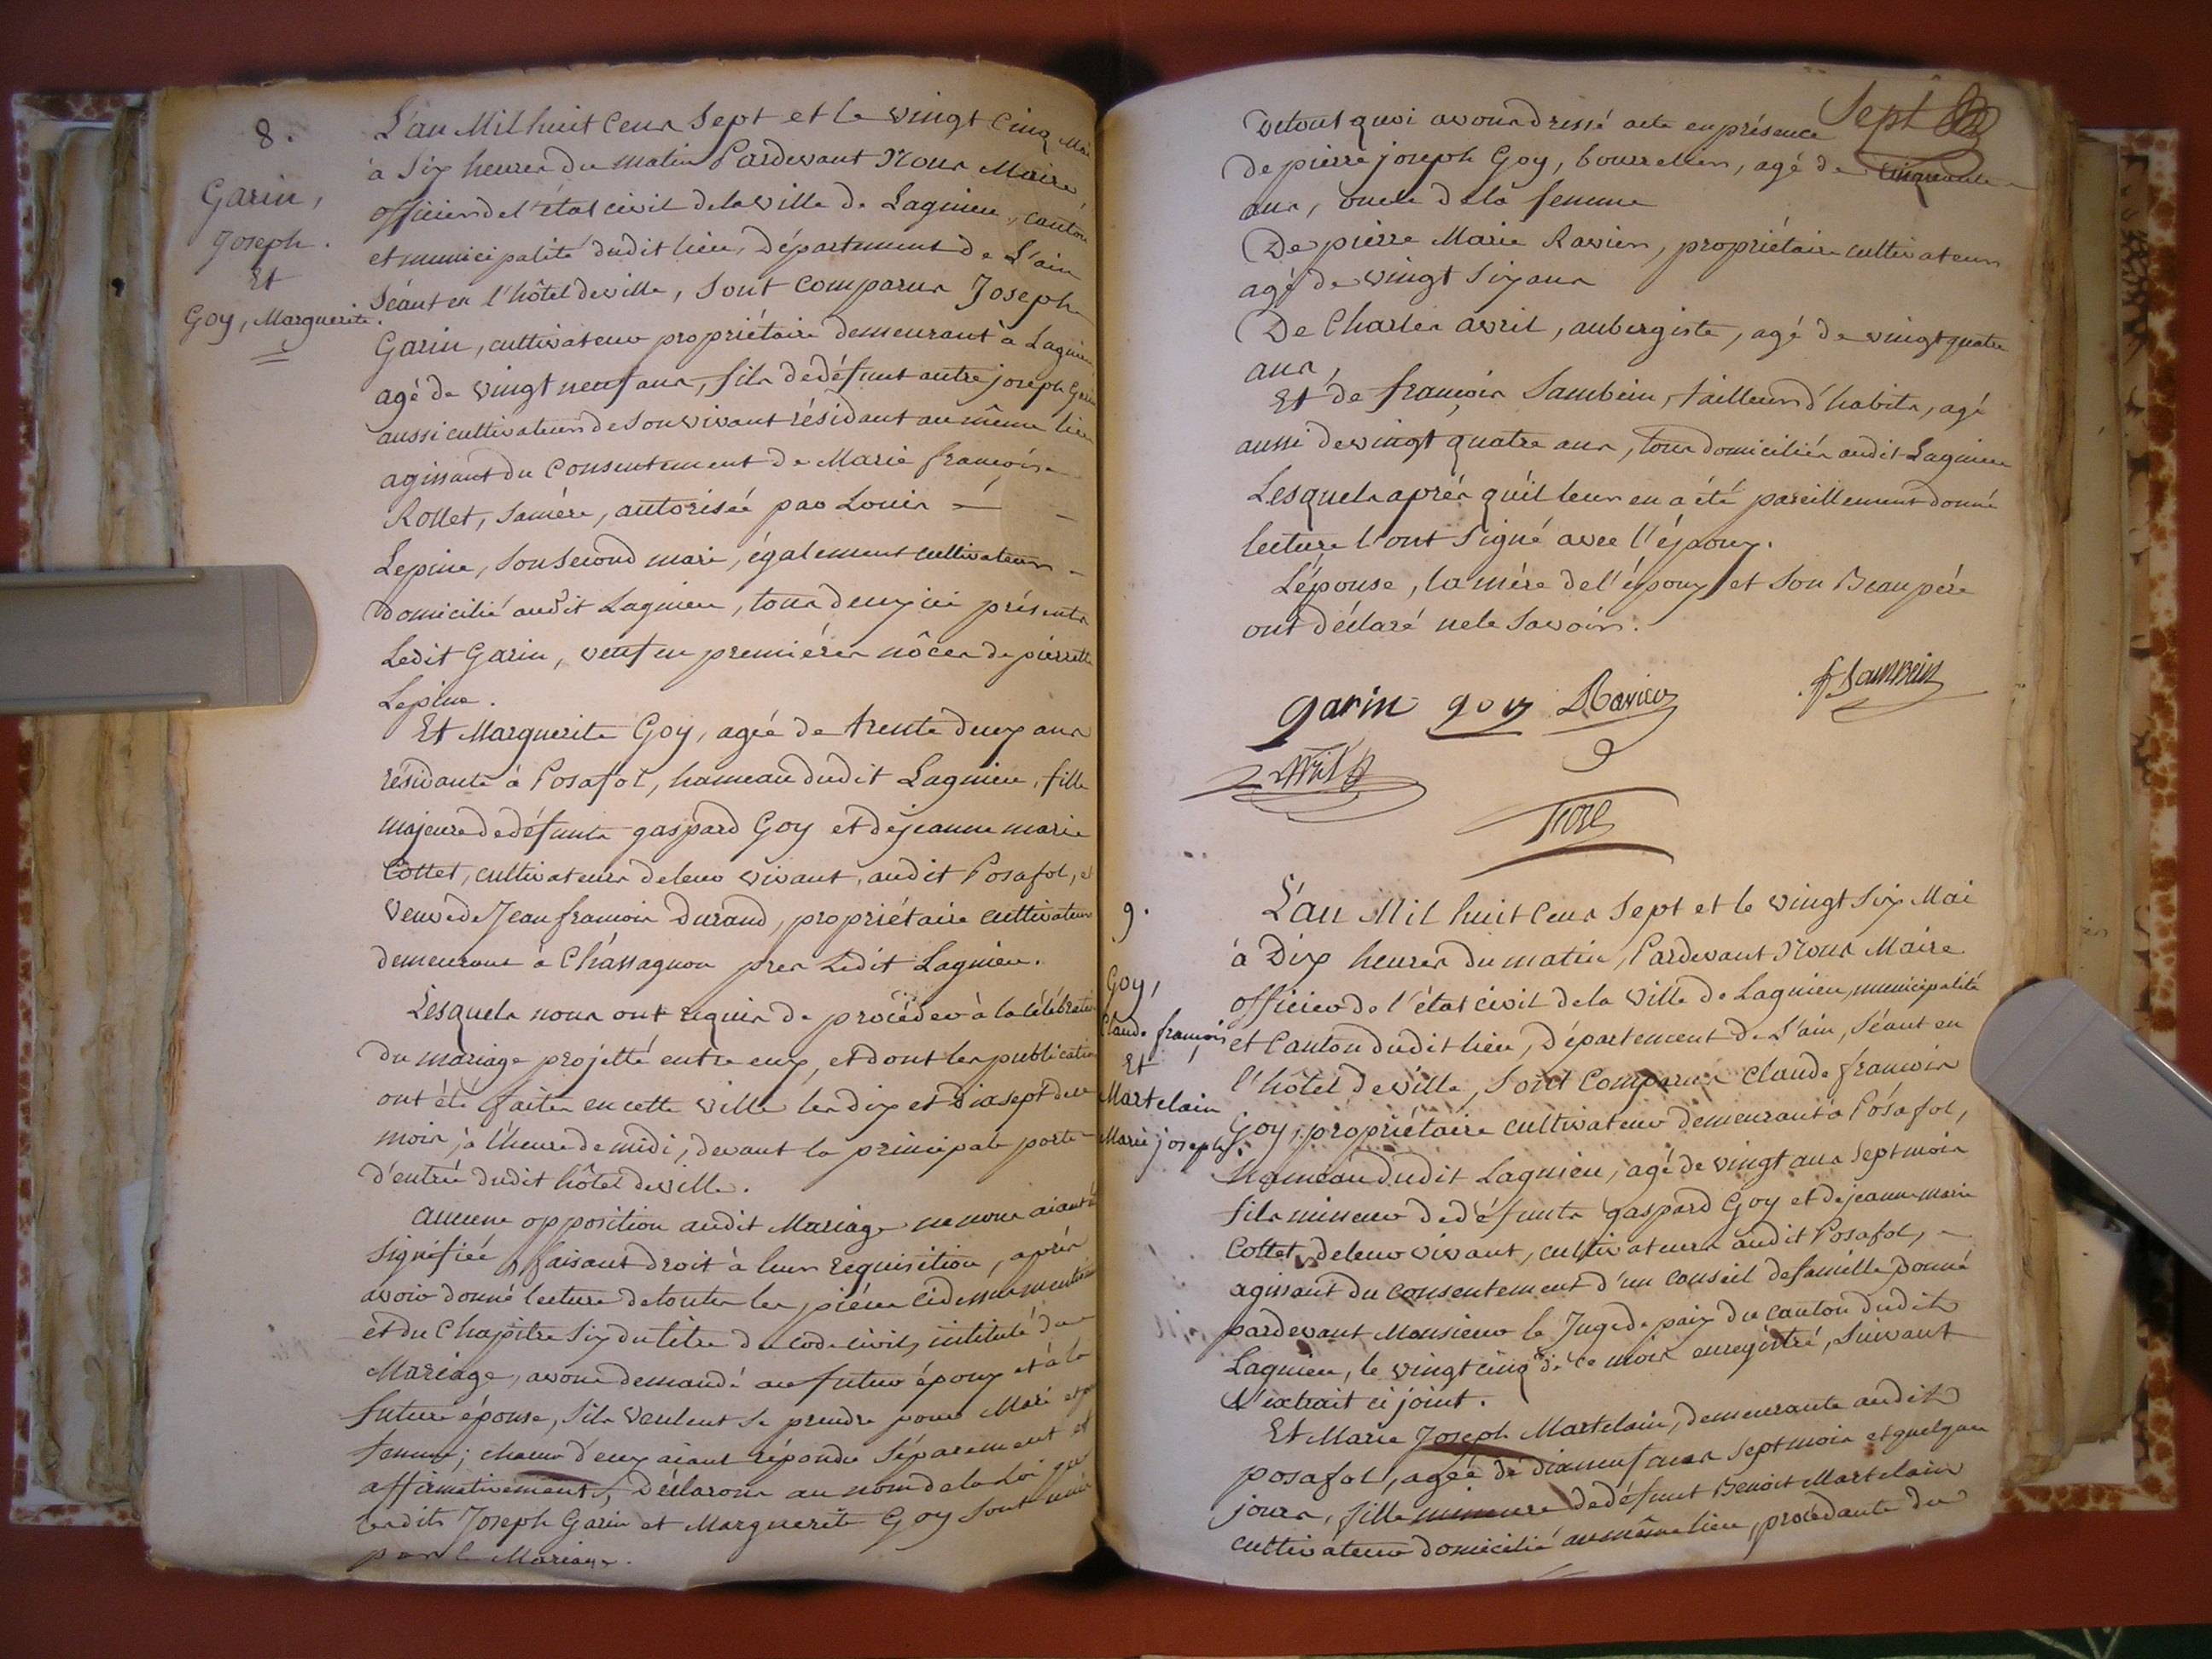 8.
Garin,
Joseph.
Et
Goy, Marguerite.
L'an Mil huit Cens Sept et le vingt Cinq Mai
à Six heures du matin Pardevant Nous Maire
officier de l'état civil de la ville de Lagnieu, canton
et municipalité dudit lieu, Département de L'ain
Séant en l'hôtel de ville, Sont Comparus Joseph
Garin, cultivateur propriétaire demeurant à Lagnieu
agé de vingt neuf ans, fils de défunt autre joseph Garin
aussi cultivateur de Son vivant résidant au même lieu
agissant du Consentement de Marie françoise
Rollet, Sa mère, autorisée par Louis
Lepine, Son Second mari, également cultivateur
domicilié audit Lagnieu, tous deux ici présents
Ledit Garin, veuf en premières nôces de pierrette
Lepine.
Et Marguerite Goy, agée de trente deux ans
résidante à Posafol, hameau dudit Lagnieu, fille
majeure de défunts gaspard Goy et de jeanne marie
Cottet, cultivateurs de leur vivant, audit Posafol, et
veuve de Jean françois Durand, propriétaire cultivateur
demeurant à Chassagnon pres Ledit Lagnieu.
Lesquels nous ont requis de procéder à la célébration
du mariage projetté entre eux, et dont les publications
ont été faites en cette ville les dix et dixsept de ce
mois, à l'heure de midi, devant la principale porte
d'entrée dudit hôtel de ville.
Aucune opposition audit Mariage ne nous aiant été
Signifiée, faisant droit à leur requisition, après
avoir donné lecture de toutes les pièces cidessus mentionnées
et du Chapitre Six du titre du code civil, intitulé du
Mariage, avons demandé au futur époux et à la
future épouse, S'ils veulent Se prendre pour Mari et pour
femme; chacun d'eux aiant répondu Séparement et
affirmativement, Déclarons au nom de la Loi que
lesdits Joseph Garin et Marguerite Goy Sont unis
par le Mariage.
Sept
De tout quoi avons dressé acte en présence
de pierre joseph Goy, bourrelier, agé de cinquante
ans, oncle de la femme
De pierre Marie Ravier, propriétaire cultivateur
agé de vingt Six ans
De Charles avril, aubergiste, agé de vingt quatre
ans,
Et de françois Sambein, tailleur d'habits, agé
aussi de vingt quatre ans, tous domiciliés audit Lagnieu
Lesquels après qu'il leur en a été pareillement donné
lecture l'ont Signé avec l'époux.
L'épouse, la mère de l'époux et Son Beau père
ont déclaré ne le Savoir.
garin goy Ravier f Sambein
Avril
9.
Goy,
Claude françois
Et
Martelain
Marie joseph.
L'an Mil huit Cens Sept et le vingt Six Mai
à Dix heures du matin, Pardevant Nous Maire
officier de l'état civil de la ville de Lagnieu, municipalité
et Canton dudit lieu, Département de L'ain, Séant en
l'hôtel de ville, Sont Comparus Claude françois
Goy, propriétaire cultivateur demeurant à Posafol,
hameau dudit Lagnieu, agé de vingt ans Sept mois
fils mineur de défunts gaspard Goy et de jeanne marie
Cottet, de leur vivant, cultivateurs audit Posafol,
agissant du consentement d'un conseil de famille donné
pardevant Monsieur le Juge de paix du canton dudit
Lagnieu, le vingt cinq de ce mois enregistré, Suivant
L'extrait ci joint.
Et Marie Joseph Martelain, demeurante audit
posafol, agée de dixneuf ans Sept mois et quelques
jours, fille mineure de défunt Benoit Martelain
cultivateur domicilié au même lieu, procédante du